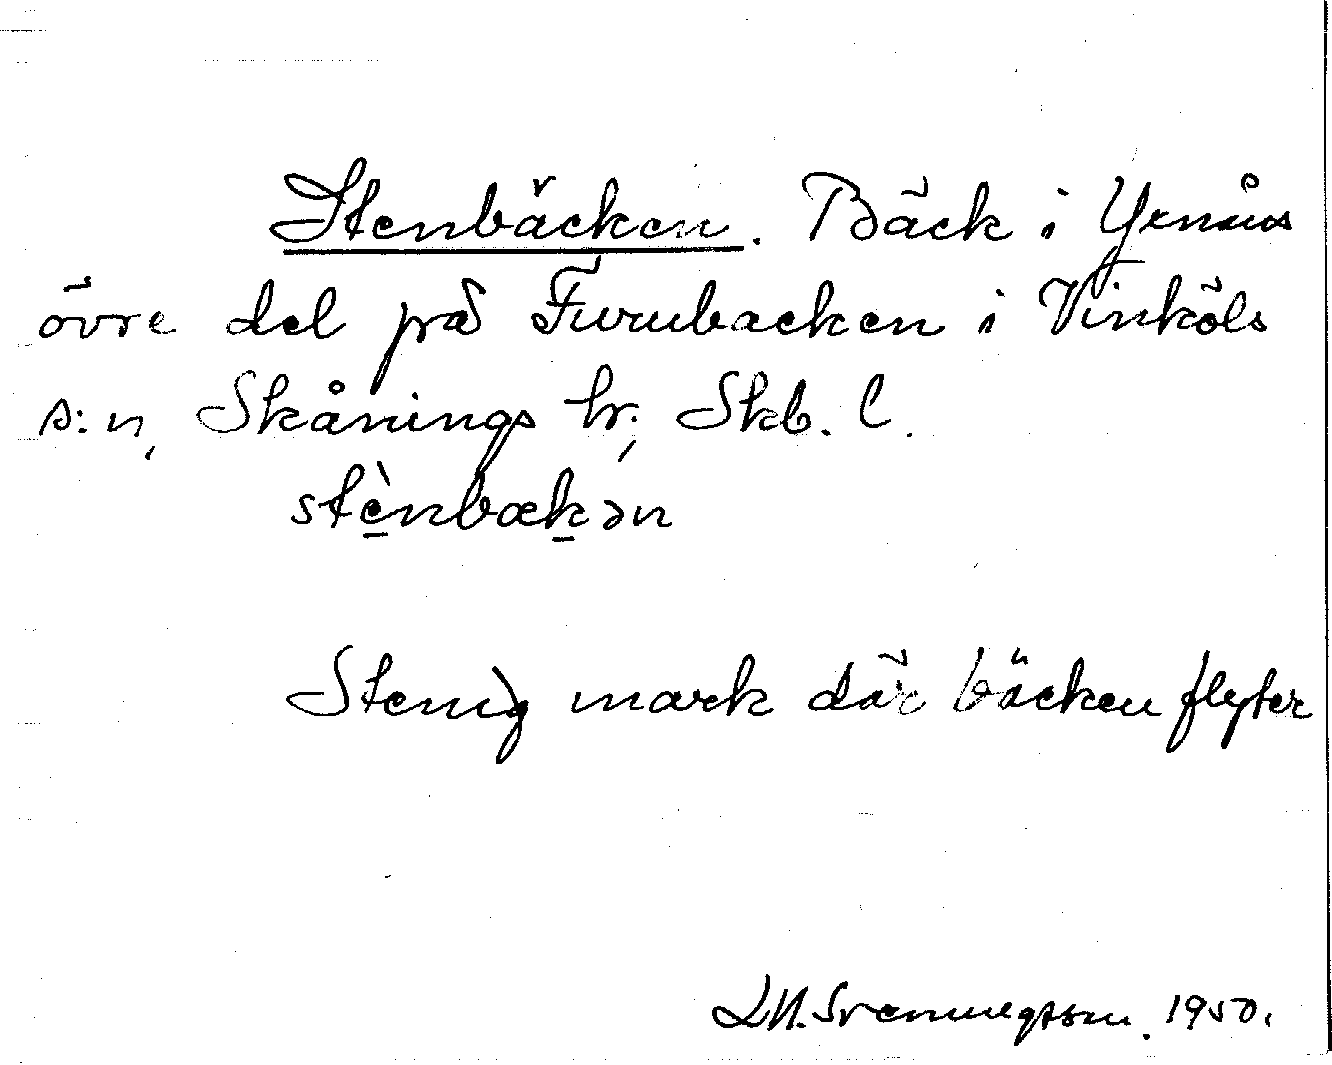 Stenbäcken. Bäck i Yrnåns
övre del på Furubacken i Vinköls
s:n, Skånings hr; Skb. l.
stènbækən
Stenig mark där bäcken flyter
L.N. Svenningsson. 1950.